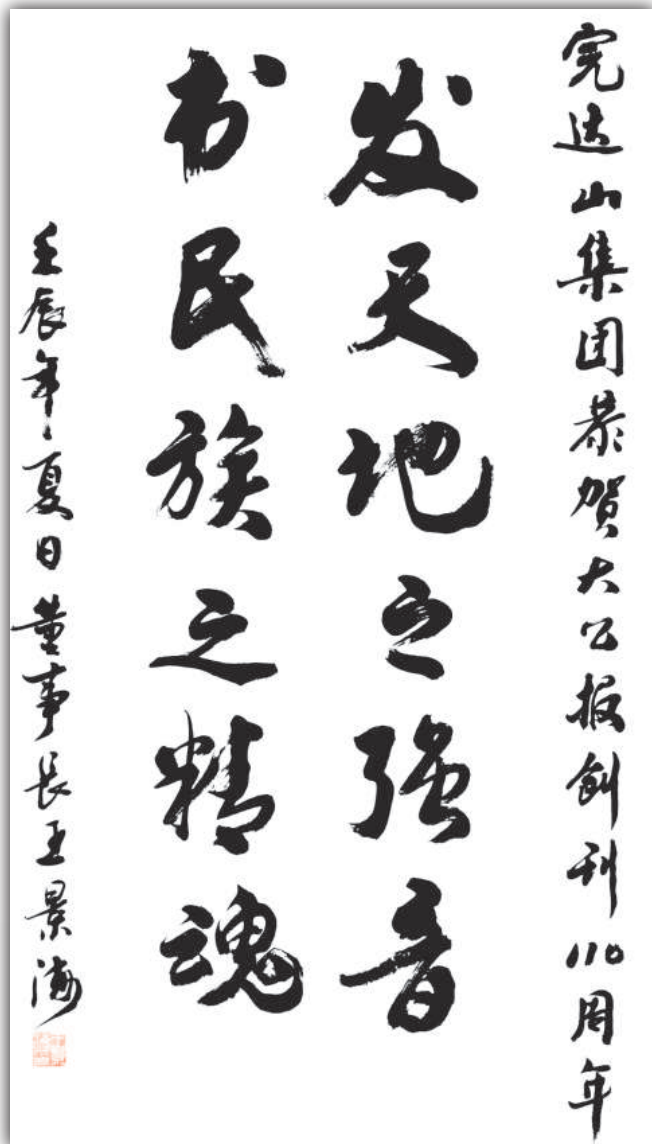 完达山集团恭贺大公报创刊110周年
发天地之强音
书民族之精魂
壬辰年夏日董事长王景海